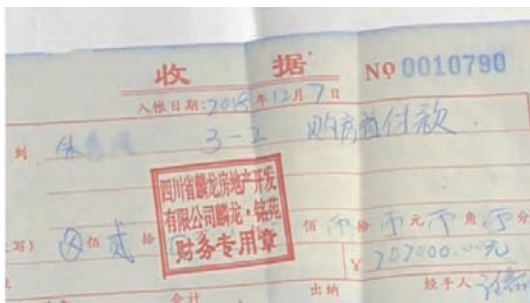 收 据 NO 0010790
入帐日期:2018年12月7日
到 3-2 购房首付款
四川省麟龙房地产开发
有限公司麟龙·铭苑
财务专用章
写) ⊗佰贰拾 佰币拾币元币角币分
¥ 207000.00元
会计 出纳 经手人